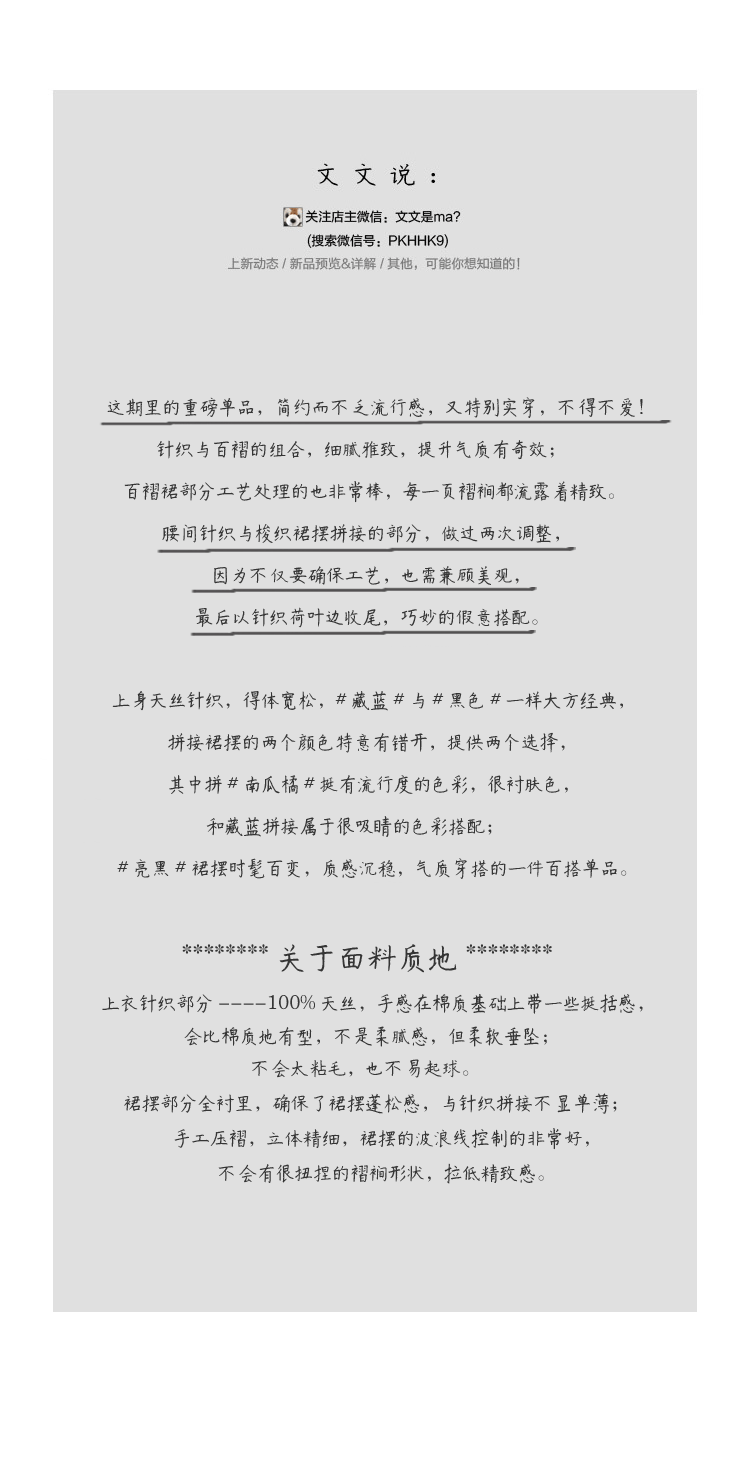 文文说：
关注店主微信：文文是ma?
(搜索微信号：PKHHK9)
上新动态 / 新品预览&详解 / 其他，可能你想知道的！
这期里的重磅单品，简约而不乏流行感，又特别实穿，不得不爱！
针织与百褶的组合，细腻雅致，提升气质有奇效；
百褶裙部分工艺处理的也非常棒，每一页褶裥都流露着精致。
腰间针织与梭织裙摆拼接的部分，做过两次调整，
因为不仅要确保工艺，也需兼顾美观，
最后以针织荷叶边收尾，巧妙的假意搭配。
上身天丝针织，得体宽松，#藏蓝#与#黑色#一样大方经典，
拼接裙摆的两个颜色特意有错开，提供两个选择，
其中拼#南瓜橘#挺有流行度的色彩，很衬肤色，
和藏蓝拼接属于很吸睛的色彩搭配；
#亮黑#裙摆时髦百变，质感沉稳，气质穿搭的一件百搭单品。
******** 关于面料质地 ********
上衣针织部分 ----100% 天丝，手感在棉质基础上带一些挺括感，
会比棉质地有型，不是柔腻感，但柔软垂坠；
不会太粘毛，也不易起球。
裙摆部分全衬里，确保了裙摆蓬松感，与针织拼接不显单薄；
手工压褶，立体精细，裙摆的波浪线控制的非常好，
不会有很扭捏的褶裥形状，拉低精致感。